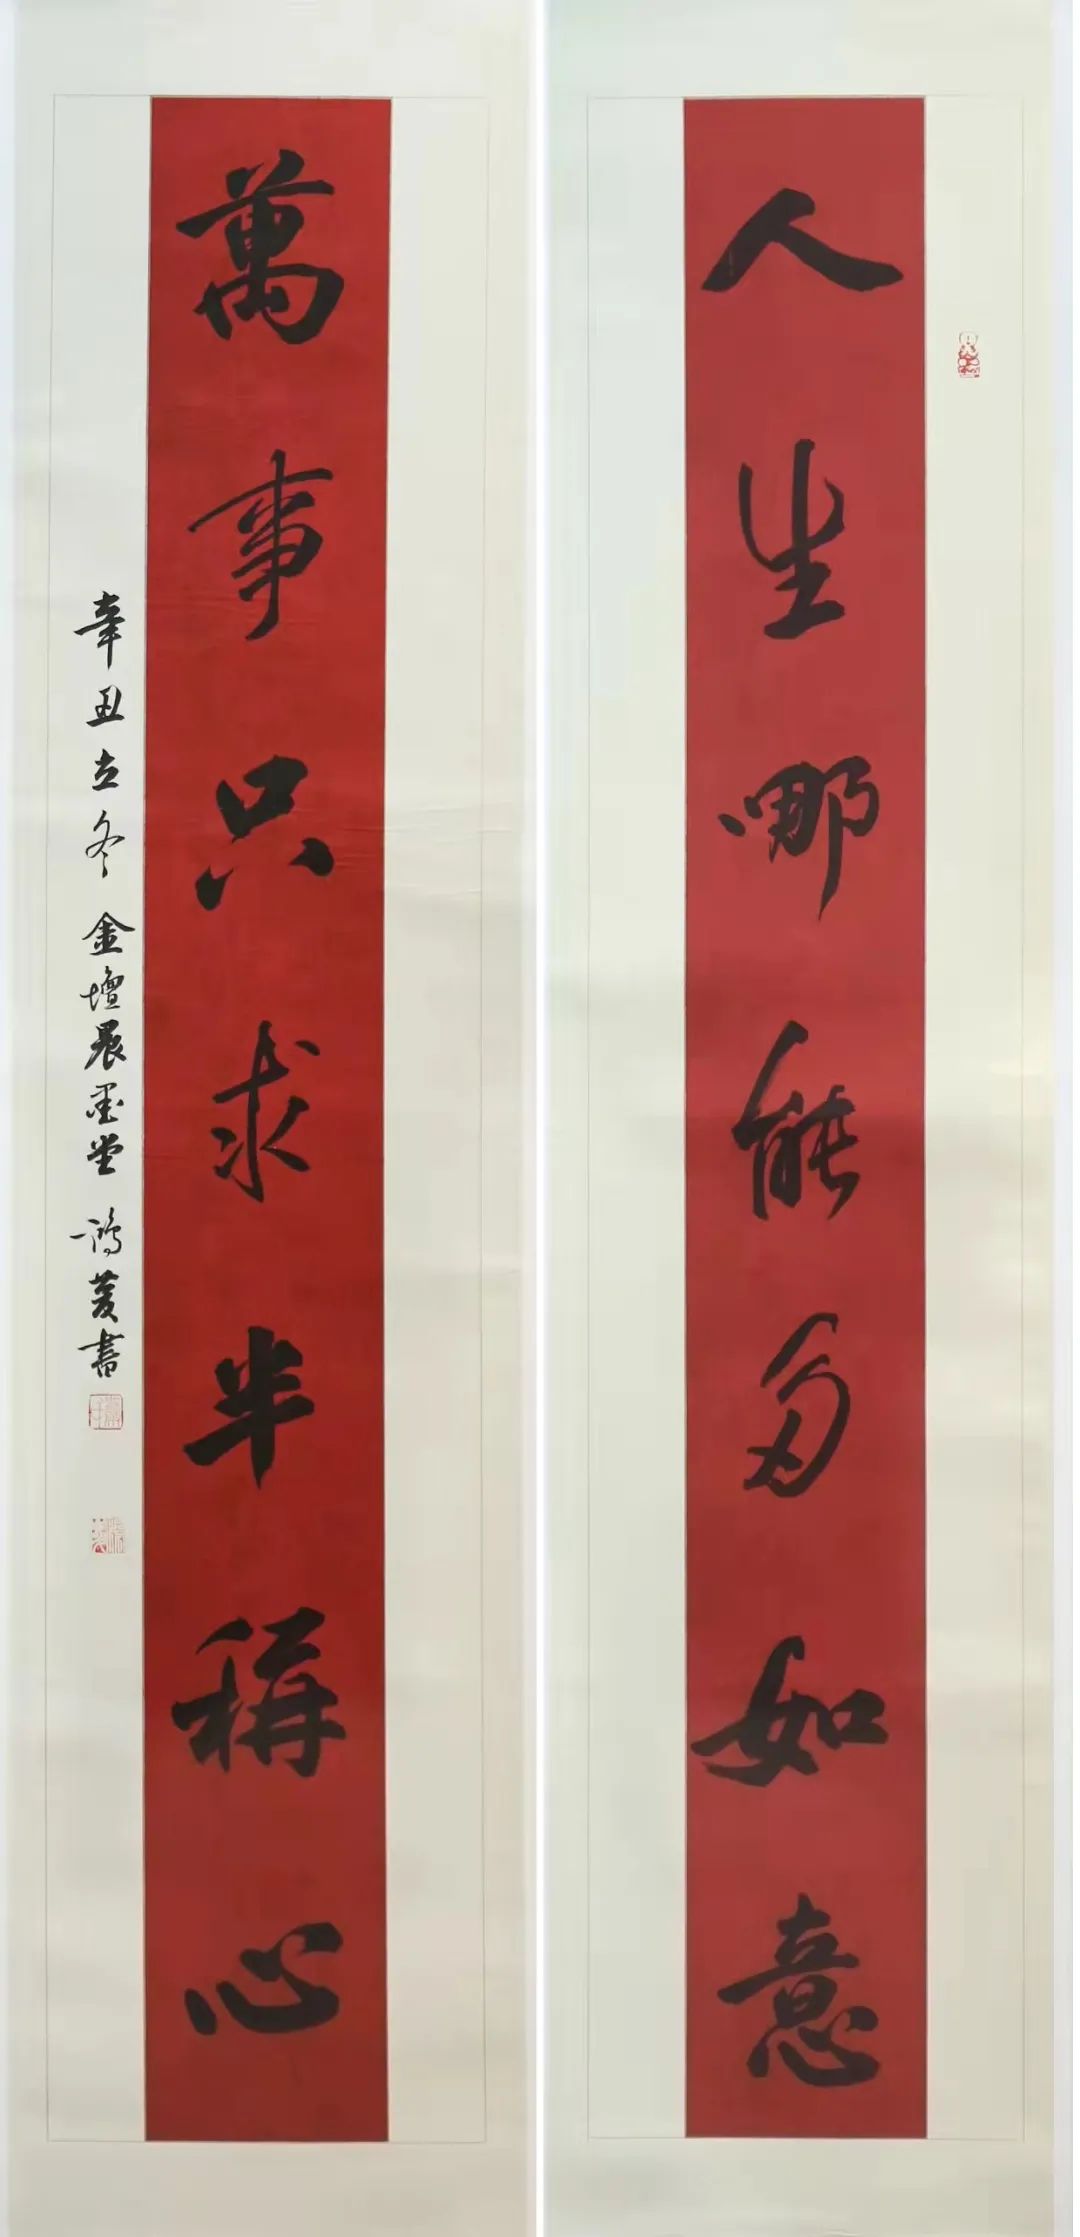 人生哪能多如意
萬事只求半稱心
辛丑立冬 金壇晨墨堂 鴻菱書